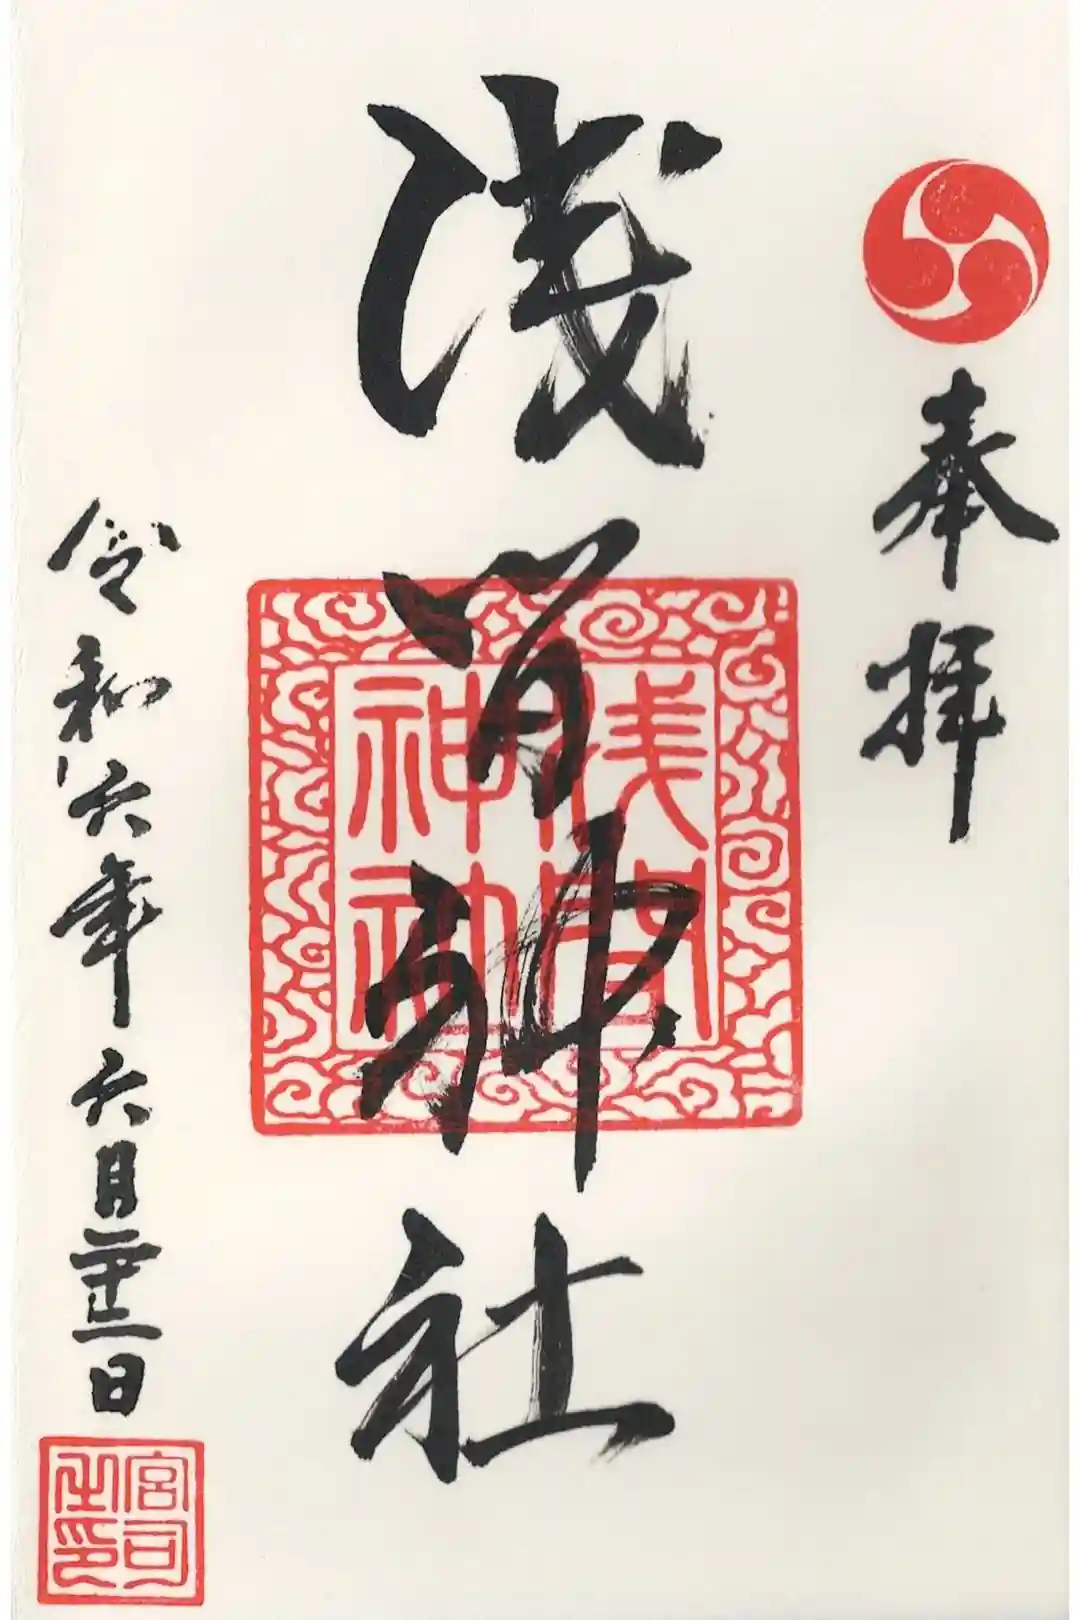 奉拝
浅間神社
淺間
神社
令和六年六月二十五日
宮司
之印